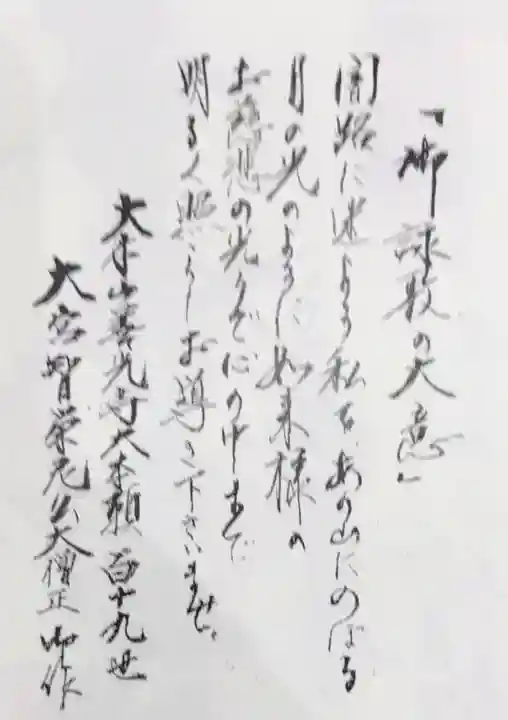 「御詠歌の大意」
闇路に迷よう私を、あの山にのぼる
月の光のように如来様の
お慈悲の光りで心の中まで
明るく照らしお導き下さいませ。
大本山善光寺大本願 百十九世
大宮智栄尼公大僧正 御作